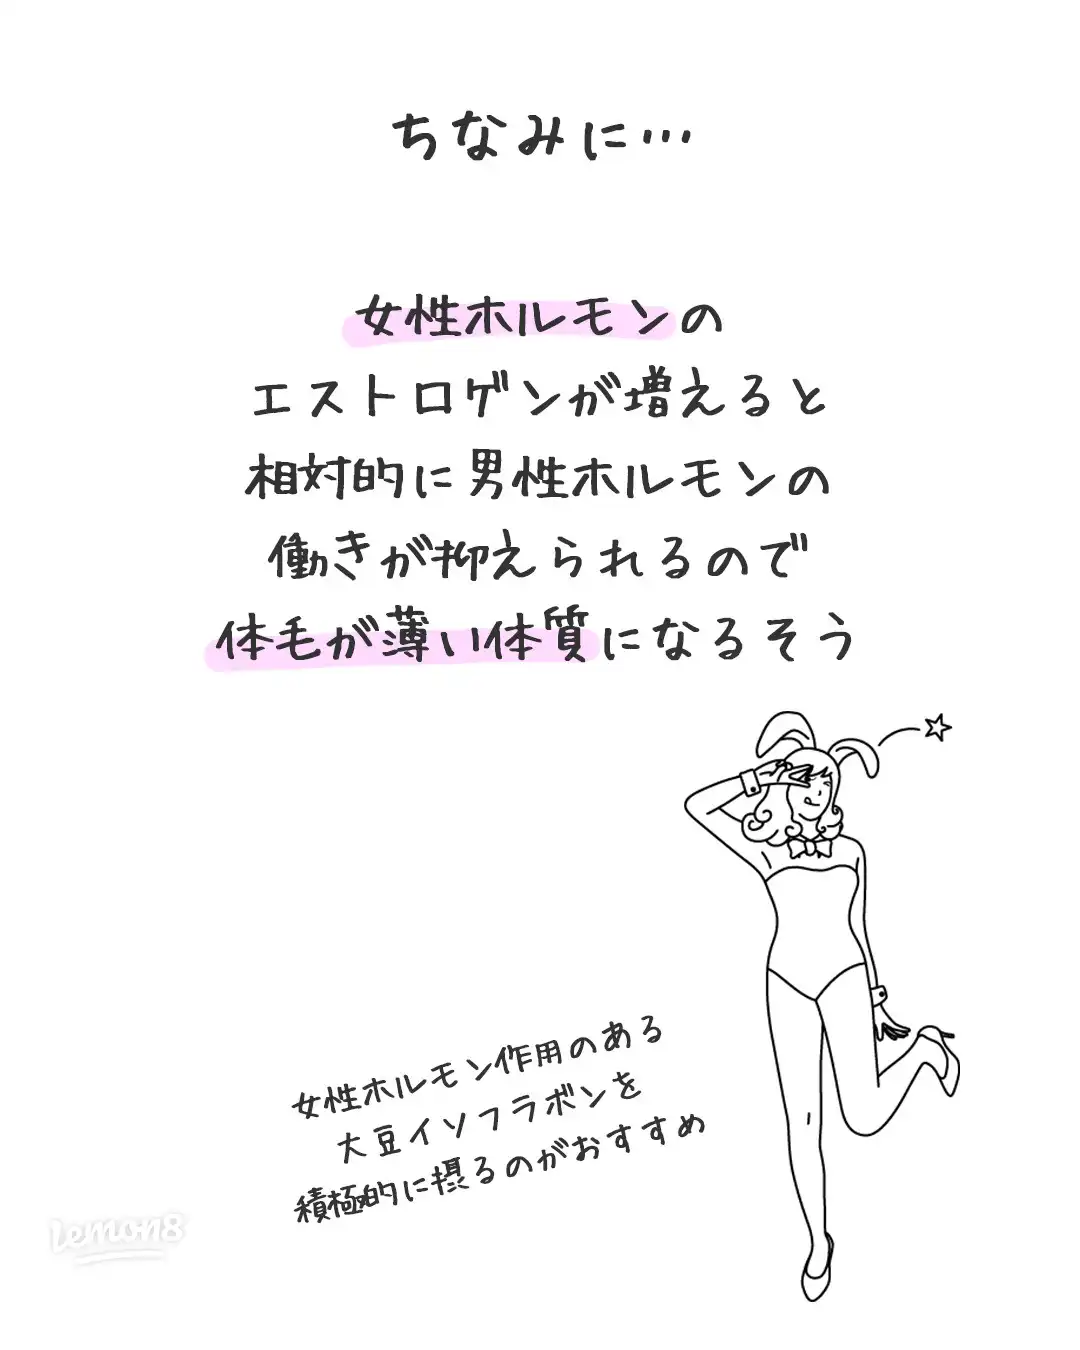 ちなみに…
女性ホルモンの
エストロゲンが増えると
相対的に男性ホルモンの
働きが抑えられるので
体毛が薄い体質になるそう
女性ホルモン作用のある
大豆イソフラボンを
積極的に摂るのがおすすめ
lemon8